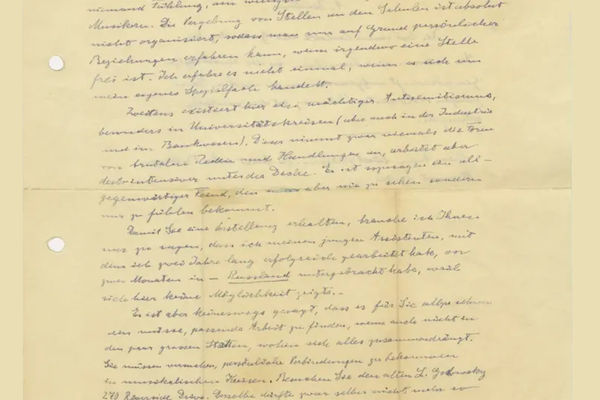 niemand Fühlung, am wenigsten
Musikern. Die Vergebung von Stellen an den Schulen ist absolut
nicht organisiert, sodass man nur auf Grund persönlicher
Beziehungen erfahren kann, wenn irgendwo eine Stelle
frei ist. Ich erfahre es nicht einmal, wenn es sich um
mein eigenes Spezialfach handelt.
Zweitens existiert hier ein mächtiger Antisemitismus,
besonders in Universitätskreisen (aber auch in der Industrie
und im Bankwesen). Dieser nimmt zwar niemals die Form
von brutalen Reden und Handlungen an, arbeitet aber
desto intensiver unter der Decke. Es ist sozusagen ein all-
gegenwärtiger Feind, den man aber nie zu sehen sondern
nur zu fühlen bekommt.
Damit Sie eine Vorstellung erhalten, brauche ich Ihnen
nur zu sagen, dass ich meinen jungen Assistenten, mit
dem ich zwei Jahre lang erfolgreich gearbeitet habe, vor
zwei Monaten in - Russland untergebracht habe, weil
sich hier keine Möglichkeit zeigte. -
Es ist aber keineswegs gesagt, dass es für Sie allzu schwer
sein müsse, passende Arbeit zu finden, wenn auch nicht in
den paar grossen Städten, wohin sich alles zusammendrängt.
Sie müssen versuchen, persönliche Verbindungen zu bekommen
in musikalischen Kreisen. Besuchen Sie den alten L. Godowsky
270 Riverside Drive. Derselbe dürfte zwar selber nicht mehr so